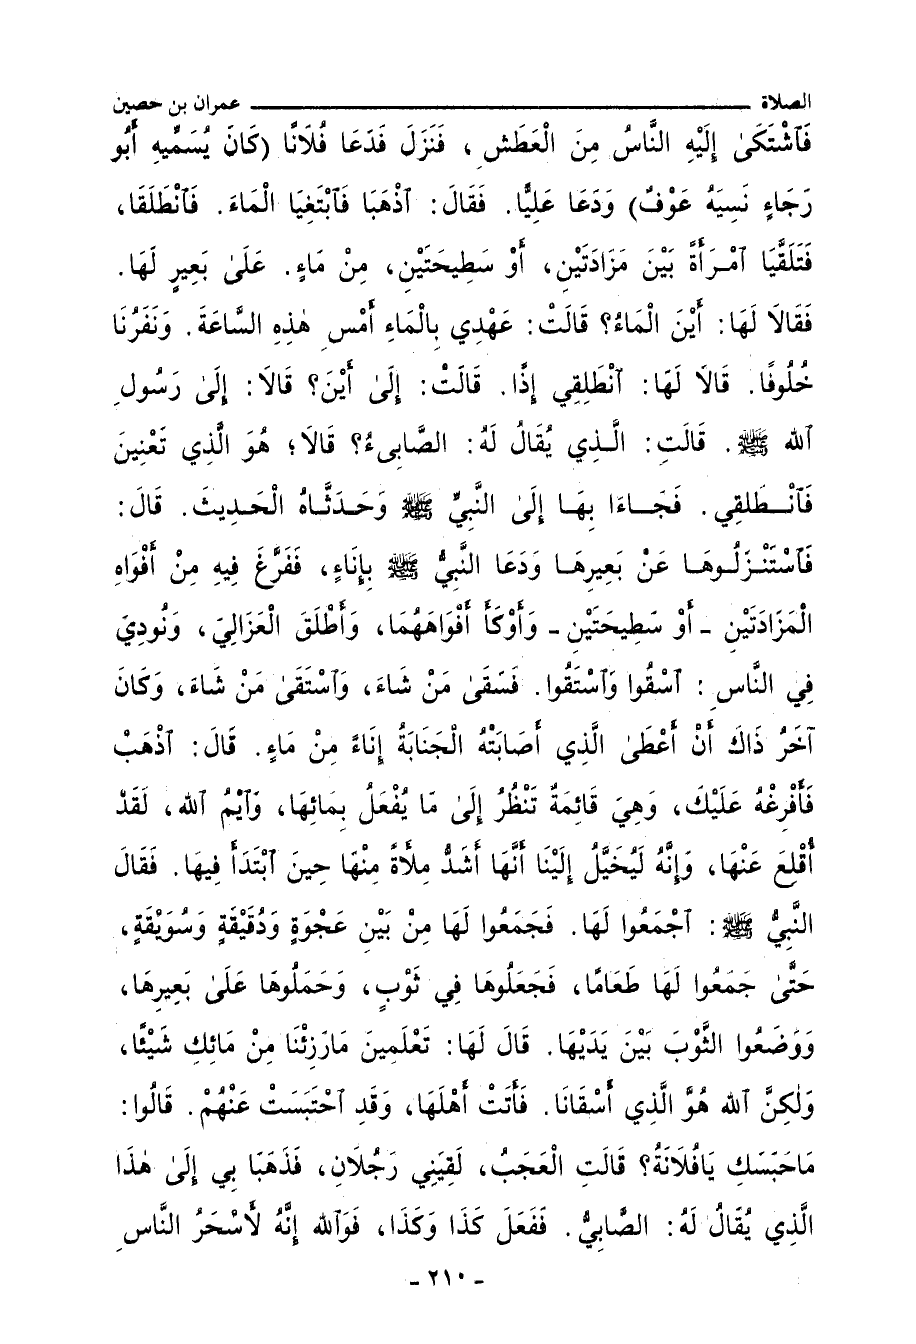 الصلاة ـــــــــــــــــــــــــــــ عمران بن حصين
فَٱشْتَكَىٰ إِلَيْهِ النَّاسُ مِنَ الْعَطَشِ ، فَنَزَلَ فَدَعَا فُلَانًا (كَانَ يُسَمِّيهِ أَبُو
رَجَاءٍ نَسِيَهُ عَوْفٌ) وَدَعَا عَلِيًّا. فَقَالَ: ٱذْهَبَا فَٱبْتَغِيَا الْمَاءَ. فَٱنْطَلَقَا،
فَتَلَقَّيَا ٱمْرَأَةً بَيْنَ مَزَادَتَيْنِ، أَوْ سَطِيحَتَيْنِ، مِنْ مَاءٍ. عَلَىٰ بَعِيرٍ لَهَا.
فَقَالَا لَهَا: أَيْنَ الْمَاءُ؟ قَالَتْ: عَهْدِي بِالْمَاءِ أَمْسِ هٰذِهِ السَّاعَةَ. وَنَفَرُنَا
خُلُوفًا. قَالَا لَهَا: ٱنْطَلِقِي إِذًا. قَالَتْ: إِلَىٰ أَيْنَ؟ قَالَا: إِلَىٰ رَسُولِ
ٱلله ﷺ. قَالَتِ: الَّذِي يُقَالُ لَهُ: الصَّابِىءُ؟ قَالَا؛ هُوَ الَّذِي تَعْنِينَ
فَٱنْطَلِقِي. فَجَاءَا بِهَا إِلَىٰ النَّبِيِّ ﷺ وَحَدَثَّاهُ الْحَدِيثَ. قَالَ:
فَٱسْتَنْزَلُوهَا عَنْ بَعِيرِهَا وَدَعَا النَّبِيُّ ﷺ بِإِنَاءٍ، فَفَرَّغَ فِيهِ مِنْ أَفْوَاهِ
الْمَزَادَتَيْنِ - أَوْ سَطِيحَتَيْنِ - وَأَوْكَأَ أَفْوَاهَهُمَا، وَأَطْلَقَ الْعَزَالِيَ، وَنُودِيَ
فِي النَّاسِ : ٱسْقُوا وَٱسْتَقُوا. فَسَقَىٰ مَنْ شَاءَ، وَٱسْتَقَىٰ مَنْ شَاءَ، وَكَانَ
آخَرُ ذَاكَ أَنْ أَعْطَىٰ الَّذِي أَصَابَتْهُ الْجَنَابَةُ إِنَاءً مِنْ مَاءٍ. قَالَ: ٱذْهَبْ
فَأَفْرِغْهُ عَلَيْكَ، وَهِيَ قَائِمَةٌ تَنْظُرُ إِلَىٰ مَا يُفْعَلُ بِمَائِهَا، وَٱيْمُ ٱلله، لَقَدْ
أُقْلِعَ عَنْهَا، وَإِنَّهُ لَيُخَيَّلُ إِلَيْنَا أَنَّهَا أَشَدُّ مِلَاةً مِنْهَا حِينَ ٱبْتَدَأَ فِيهَا. فَقَالَ
النَّبِيُّ ﷺ: ٱجْمَعُوا لَهَا. فَجَمَعُوا لَهَا مِنْ بَيْنِ عَجْوَةٍ وَدُقَيْقَةٍ وَسُوَيْقَةٍ،
حَتَّىٰ جَمَعُوا لَهَا طَعَامًا، فَجَعَلُوهَا فِي ثَوْبٍ، وَحَمَلُوهَا عَلَىٰ بَعِيرِهَا،
وَوَضَعُوا الثَّوْبَ بَيْنَ يَدَيْهَا. قَالَ لَهَا: تَعْلَمِينَ مَارَزِئْنَا مِنْ مَائِكِ شَيْئًا،
وَلٰكِنَّ ٱلله هُوَ الَّذِي أَسْقَانَا. فَأَتَتْ أَهْلَهَا، وَقَدِ ٱحْتَبَسَتْ عَنْهُمْ. قَالُوا:
مَاحَبَسَكِ يَافُلَانَةُ؟ قَالَتِ الْعَجَبُ، لَقِيَنِي رَجُلَانِ، فَذَهَبَا بِي إِلَىٰ هٰذَا
الَّذِي يُقَالُ لَهُ: الصَّابِيُّ. فَفَعَلَ كَذَا وَكَذَا، فَوَٱلله إِنَّهُ لَأَسْحَرُ النَّاسِ
- ٢١٠ -